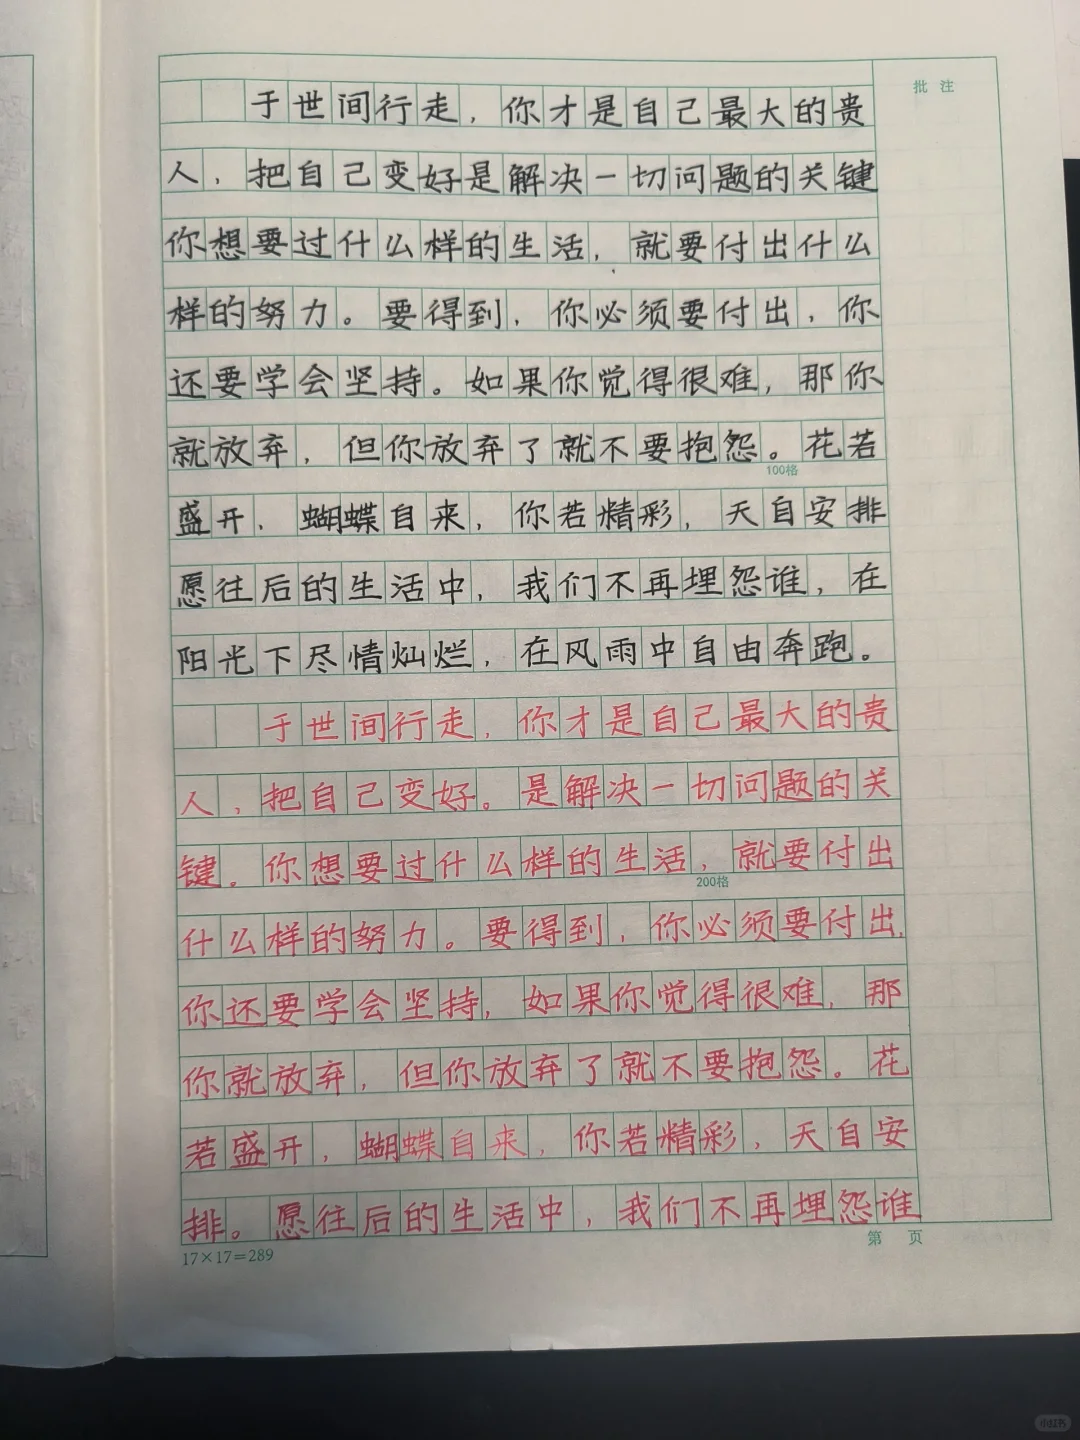 批 注
于世间行走，你才是自己最大的贵
人，把自己变好是解决一切问题的关键
你想要过什么样的生活，就要付出什么
样的努力。要得到，你必须要付出，你
还要学会坚持。如果你觉得很难，那你
就放弃，但你放弃了就不要抱怨。花若
100格
盛开，蝴蝶自来，你若精彩，天自安排
愿往后的生活中，我们不再埋怨谁，在
阳光下尽情灿烂，在风雨中自由奔跑。
于世间行走，你才是自己最大的贵
人，把自己变好。是解决一切问题的关
键。你想要过什么样的生活，就要付出
200格
什么样的努力。要得到，你必须要付出，
你还要学会坚持，如果你觉得很难，那
你就放弃，但你放弃了就不要抱怨。花
若盛开，蝴蝶自来，你若精彩，天自安
排。愿往后的生活中，我们不再埋怨谁
17×17=289
第 页
小红书